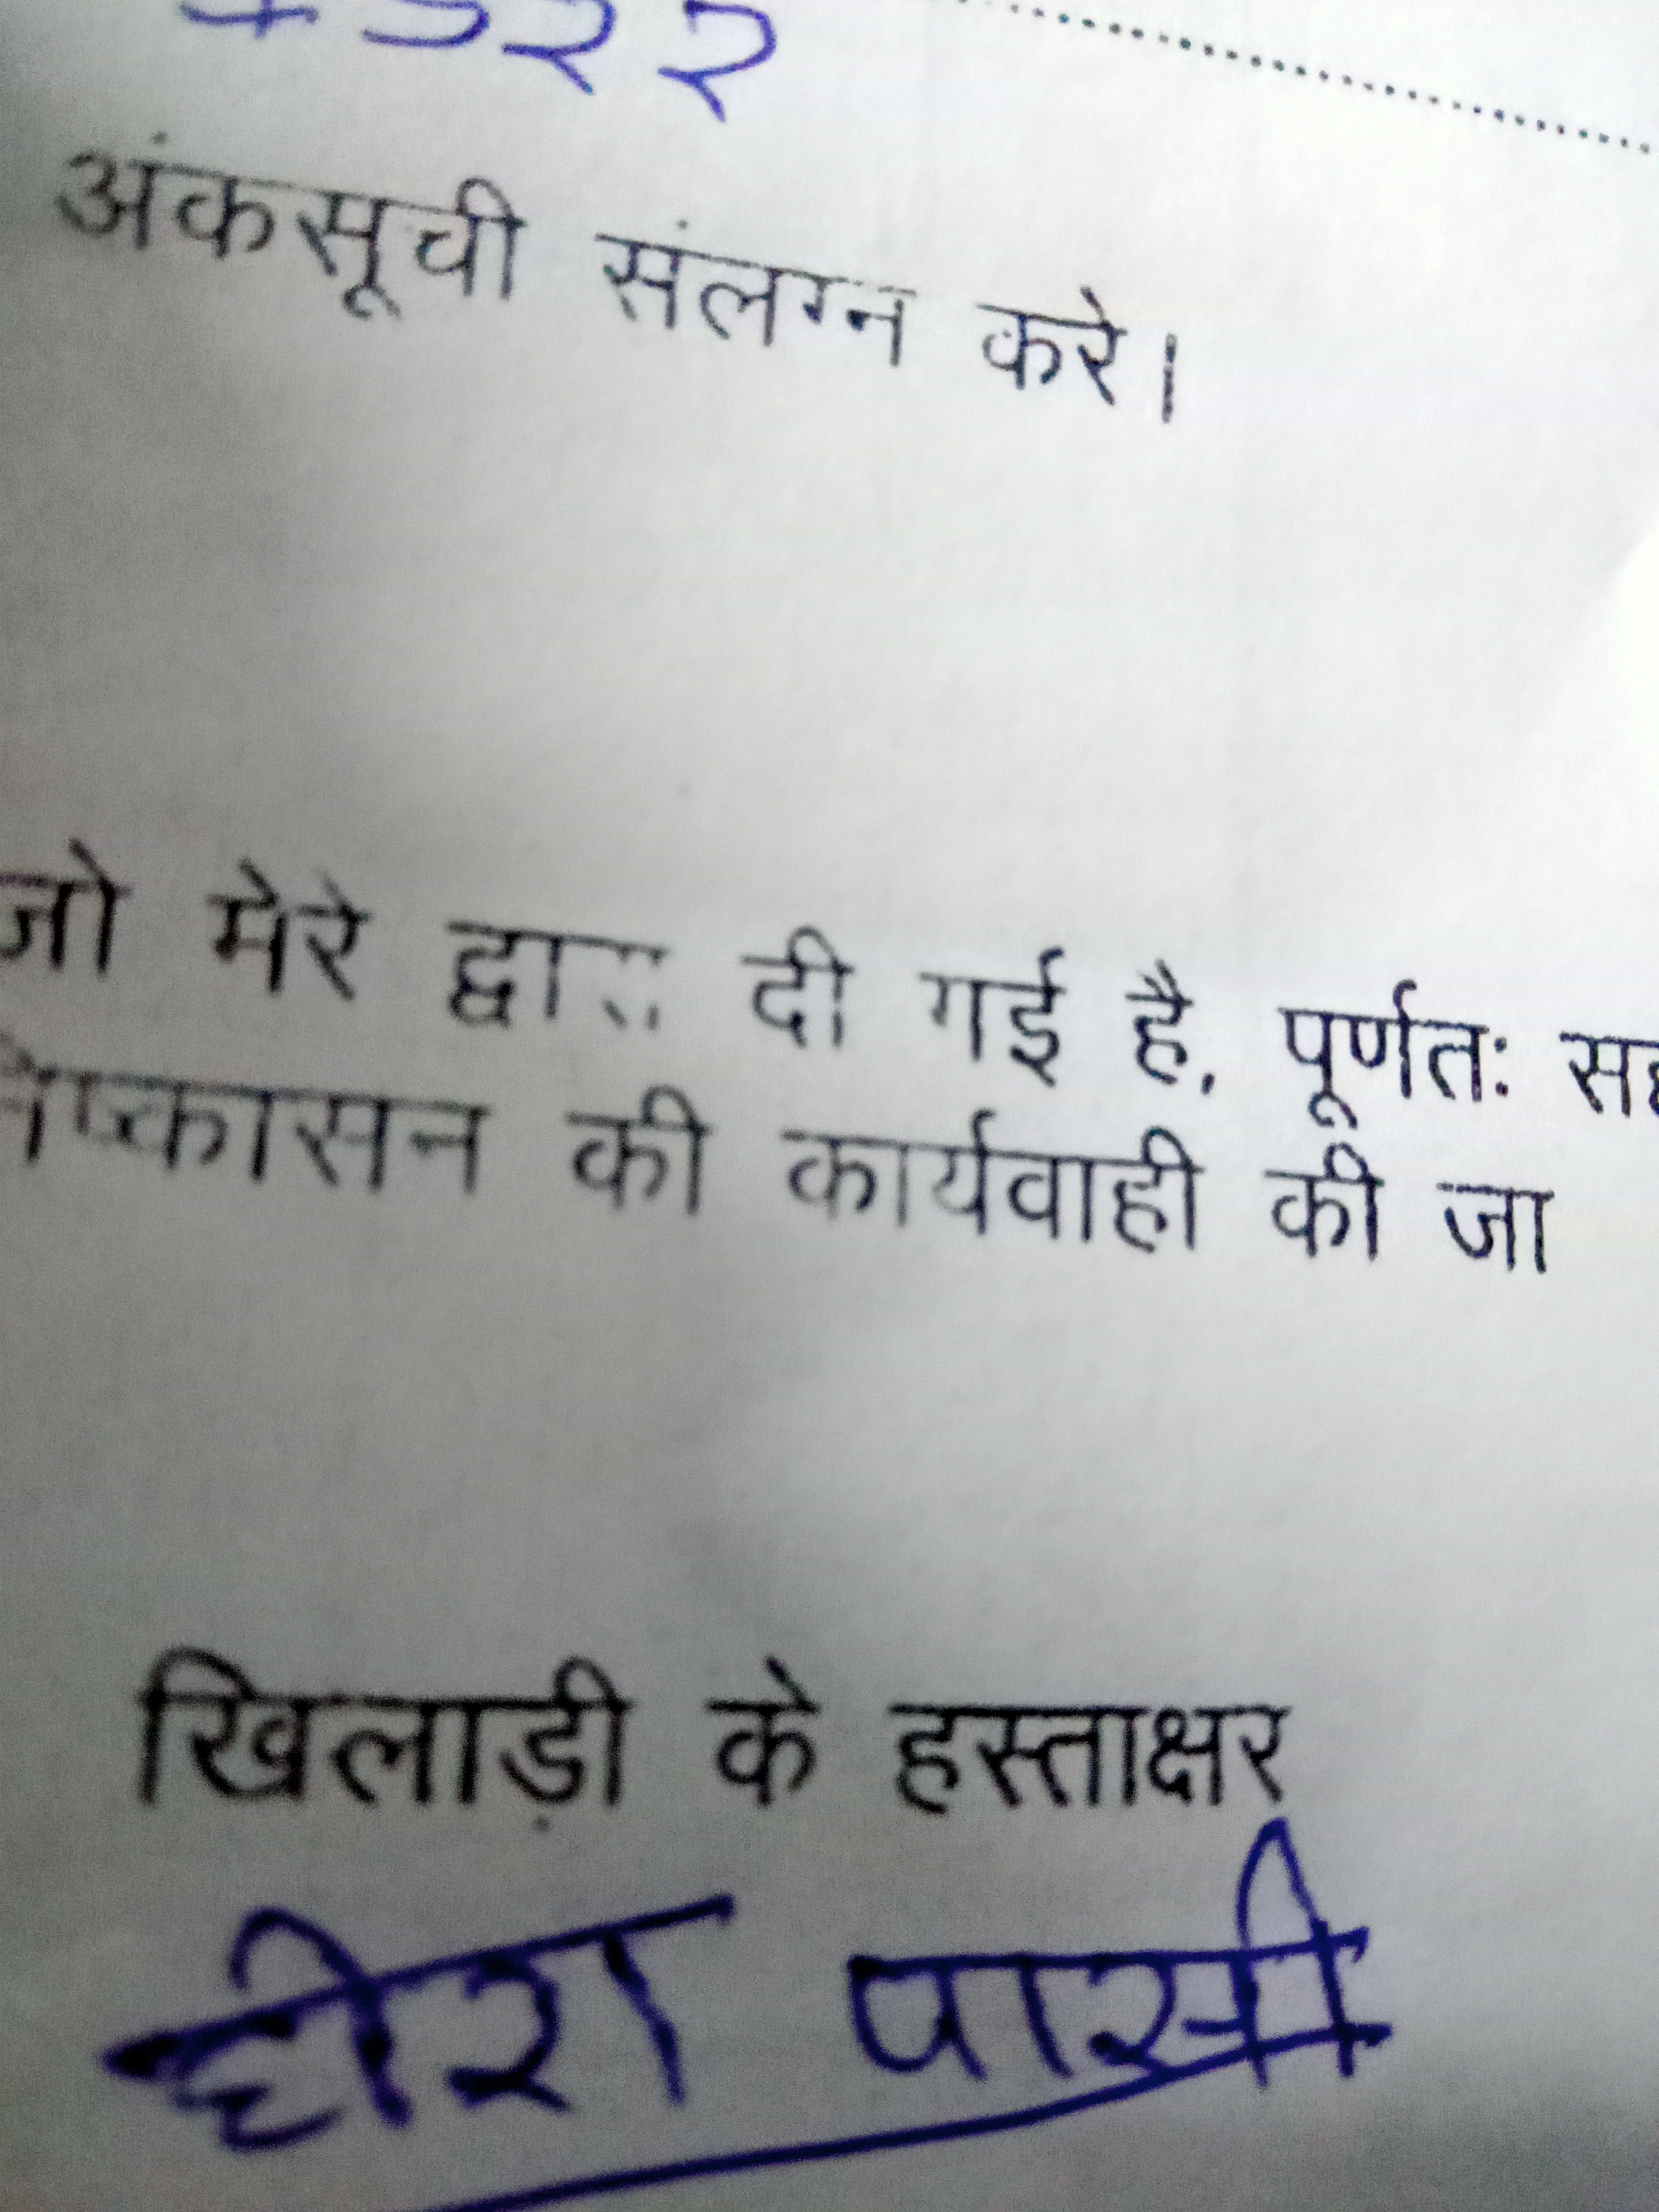 अंकसूची संलग्न करे।
जो मेरे द्वारा दी गई है, पूर्णतः
निष्कासन की कार्यवाही की जा
खिलाड़ी के हस्ताक्षर
हीरा पासी